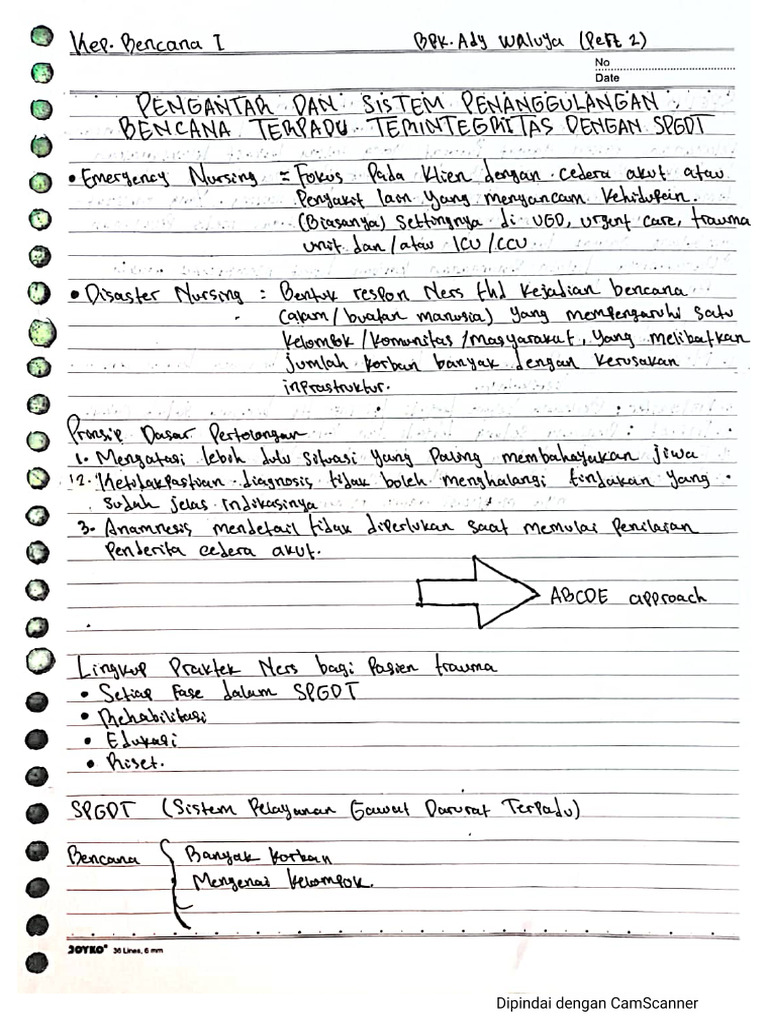 Kep. Bencana I
BPK. Ady Waluya (Pert 2)
No
Date
PENGANTAR DAN SISTEM PENANGGULANGAN
BENCANA TERPADU TEMINTEGRITAS DENGAN SPGDT
• Emergency Nursing = Fokus Pada Klien dengan cedera akut atau
Penyakit lain yang menyancam Kehidupan.
(Biasanya) settingnya di UGD, urgent care, trauma
unit dan/atau ICU/CCU
• Disaster Nursing = Bentuk respon Ners thd Kejadian bencana
(alam/buatan manusia) yang mempengaruhi satu
kelompok/komunitas/masyarakat, yang melibatkan
jumlah korban banyak dengan kerusakan
inprastruktur.
Prinsip Dasar Pertolongan
1. Mengatasi lebih dulu situasi yang Paling membahayakan jiwa
2. Ketidakpastian diagnosis tidak boleh menghalangi tindakan yang
sudah jelas indikasinya
3. Anamnesis mendetail tidak diperlukan saat memulai penilaian
Penderita cedera akut.
ABCDE approach
Lingkup Praktek Ners bagi Pasien trauma
• Setiap Fase dalam SPGDT
• Rehabilitasi
• Edukasi
• Riset.
SPGDT (Sistem Pelayanan Gawat Darurat Terpadu)
Bencana { Banyak Korban
Mengenai Kelompok.
JOYKO 36 Lines, 6 mm
Dipindai dengan CamScanner